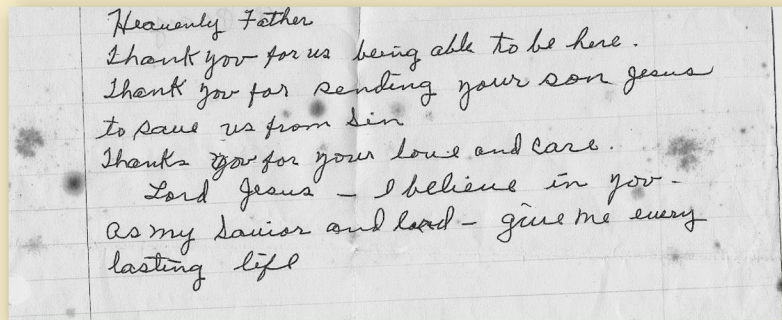 Heavenly Father
Thank you for us being able to be here.
Thank you for sending your son Jesus
to save us from Sin
Thanks you for your love and care.
Lord Jesus – I believe in you -
as my Savior and lord – give me every
lasting life